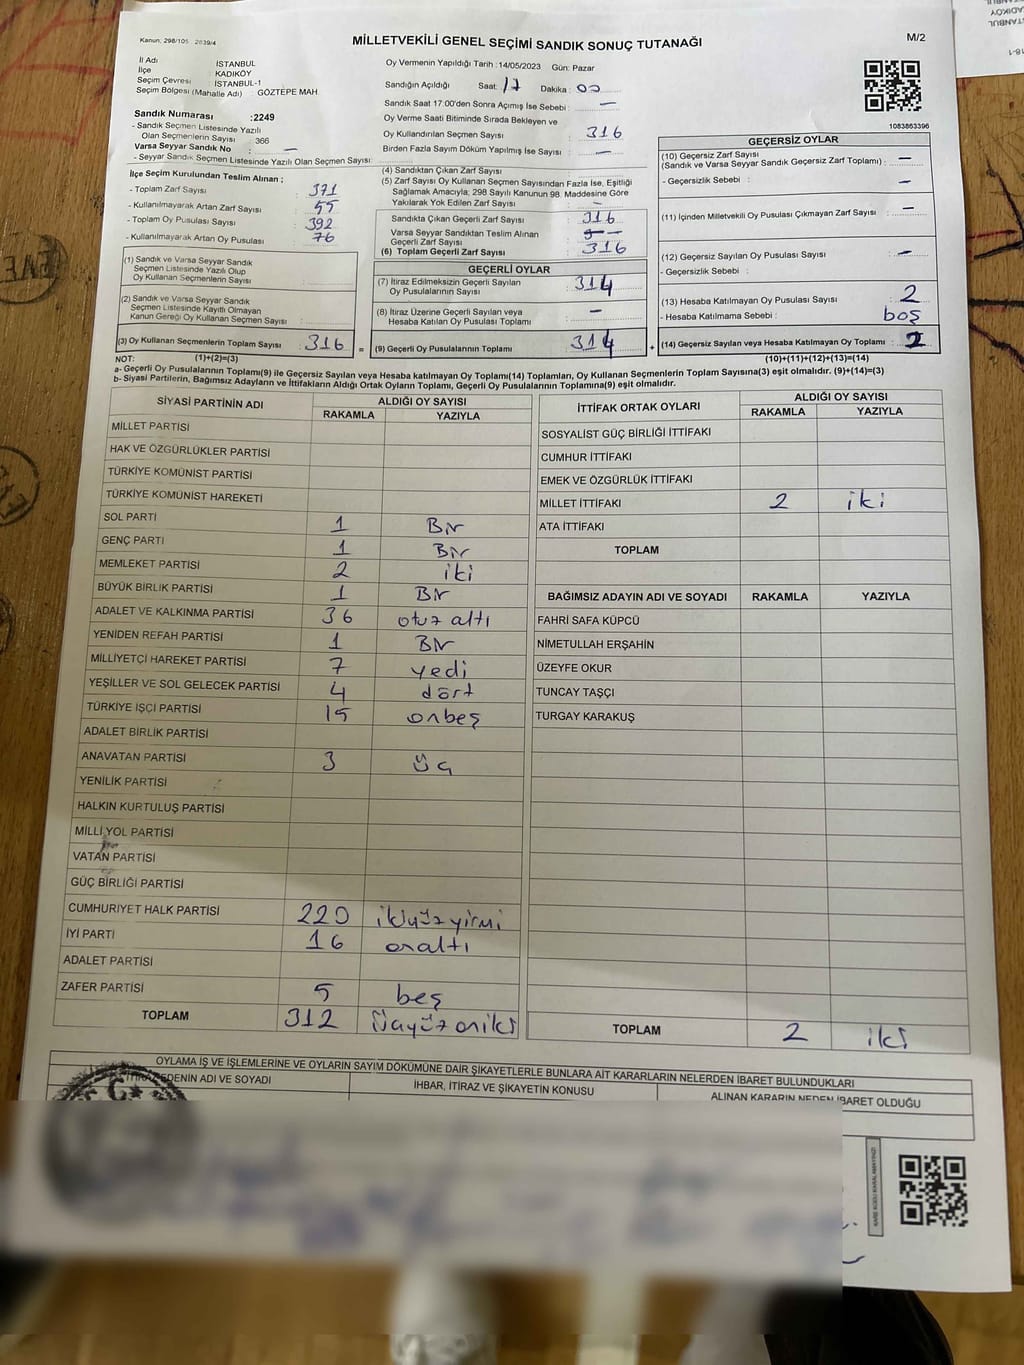 Kanun, 298/105 2839/4
MİLLETVEKİLİ GENEL SEÇİMİ SANDIK SONUÇ TUTANAĞI
M/2
İl Adı : İSTANBUL
İlçe : KADIKÖY
Seçim Çevresi : İSTANBUL-1
Seçim Bölgesi (Mahalle Adı) : GÖZTEPE MAH.
Sandık Numarası :2249
- Sandık Seçmen Listesinde Yazılı
Olan Seçmenlerin Sayısı : 366
Varsa Seyyar Sandık No : —
- Seyyar Sandık Seçmen Listesinde Yazılı Olan Seçmen Sayısı:
İlçe Seçim Kurulundan Teslim Alınan ;
- Toplam Zarf Sayısı : 371
- Kullanılmayarak Artan Zarf Sayısı : 55
- Toplam Oy Pusulası Sayısı : 392
- Kullanılmayarak Artan Oy Pusulası : 76
(1) Sandık ve Varsa Seyyar Sandık
Seçmen Listesinde Yazılı Olup
Oy Kullanan Seçmenlerin Sayısı :
(2) Sandık ve Varsa Seyyar Sandık
Seçmen Listesinde Kayıtlı Olmayan
Kanun Gereği Oy Kullanan Seçmen Sayısı :
(3) Oy Kullanan Seçmenlerin Toplam Sayısı : 316
Oy Vermenin Yapıldığı Tarih :14/05/2023 Gün: Pazar
Sandığın Açıldığı Saat: 17 Dakika : 00
Sandık Saat 17:00'den Sonra Açımış İse Sebebi : —
Oy Verme Saati Bitiminde Sırada Bekleyen ve
Oy Kullandırılan Seçmen Sayısı : 316
Birden Fazla Sayım Döküm Yapılmış İse Sayısı : —
(4) Sandıktan Çıkan Zarf Sayısı :
(5) Zarf Sayısı Oy Kullanan Seçmen Sayısından Fazla İse, Eşitliği
Sağlamak Amacıyla; 298 Sayılı Kanunun 98. Maddesine Göre
Yakılarak Yok Edilen Zarf Sayısı : —
Sandıkta Çıkan Geçerli Zarf Sayısı : 316
Varsa Seyyar Sandıktan Teslim Alınan
Geçerli Zarf Sayısı :
(6) Toplam Geçerli Zarf Sayısı : 316
GEÇERLİ OYLAR
(7) İtiraz Edilmeksizin Geçerli Sayılan
Oy Pusulalarının Sayısı : 314
(8) İtiraz Üzerine Geçerli Sayılan veya
Hesaba Katılan Oy Pusulası Toplamı : —
= (9) Geçerli Oy Pusulalarının Toplamı : 314 +
1083863396
GEÇERSİZ OYLAR
(10) Geçersiz Zarf Sayısı
(Sandık ve Varsa Seyyar Sandık Geçersiz Zarf Toplamı) : —
- Geçersizlik Sebebi : —
(11) İçinden Milletvekili Oy Pusulası Çıkmayan Zarf Sayısı : —
(12) Geçersiz Sayılan Oy Pusulası Sayısı : —
- Geçersizlik Sebebi :
(13) Hesaba Katılmayan Oy Pusulası Sayısı : 2
- Hesaba Katılmama Sebebi : boş
(14) Geçersiz Sayılan veya Hesaba Katılmayan Oy Toplamı : 2
NOT: (1)+(2)=(3) (10)+(11)+(12)+(13)=(14)
a- Geçerli Oy Pusulasının Toplamı(9) ile Geçersiz Sayılan veya Hesaba Katılmayan Oy Toplamı(14) Toplamları, Oy Kullanan Seçmenlerin Toplam Sayısına(3) eşit olmalıdır. (9)+(14)=(3)
b- Siyasi Partilerin, Bağımsız Adayların ve İttifakların Aldığı Ortak Oyların Toplamı, Geçerli Oy Pusulalarının Toplamına(9) eşit olmalıdır.
SİYASİ PARTİNİN ADI ALDIĞI OY SAYISI
RAKAMLA YAZIYLA
MİLLET PARTİSİ
HAK VE ÖZGÜRLÜKLER PARTİSİ
TÜRKİYE KOMÜNİST PARTİSİ
TÜRKİYE KOMÜNİST HAREKETİ
SOL PARTİ 1 Bir
GENÇ PARTİ 1 Bir
MEMLEKET PARTİSİ 2 iki
BÜYÜK BİRLİK PARTİSİ 1 Bir
ADALET VE KALKINMA PARTİSİ 36 otuz altı
YENİDEN REFAH PARTİSİ 1 Bir
MİLLİYETÇİ HAREKET PARTİSİ 7 yedi
YEŞİLLER VE SOL GELECEK PARTİSİ 4 dört
TÜRKİYE İŞÇİ PARTİSİ 15 onbeş
ADALET BİRLİK PARTİSİ
ANAVATAN PARTİSİ 3 üç
YENİLİK PARTİSİ
HALKIN KURTULUŞ PARTİSİ
MİLLİ YOL PARTİSİ
VATAN PARTİSİ
GÜÇ BİRLİĞİ PARTİSİ
CUMHURİYET HALK PARTİSİ 220 ikiyüz yirmi
İYİ PARTİ 16 onaltı
ADALET PARTİSİ
ZAFER PARTİSİ 5 beş
TOPLAM 312 üçyüz oniki
İTTİFAK ORTAK OYLARI ALDIĞI OY SAYISI
RAKAMLA YAZIYLA
SOSYALİST GÜÇ BİRLİĞİ İTTİFAKI
CUMHUR İTTİFAKI
EMEK VE ÖZGÜRLÜK İTTİFAKI
MİLLET İTTİFAKI 2 iki
ATA İTTİFAKI
TOPLAM
BAĞIMSIZ ADAYIN ADI VE SOYADI RAKAMLA YAZIYLA
FAHRİ SAFA KÜPCÜ
NİMETULLAH ERŞAHİN
ÜZEYFE OKUR
TUNCAY TAŞÇI
TURGAY KARAKUŞ
TOPLAM 2 iki
OYLAMA İŞ VE İŞLEMLERİNE VE OYLARIN SAYIM DÖKÜMÜNE DAİR ŞİKAYETLERLE BUNLARA AİT KARARLARIN NELERDEN İBARET BULUNDUKLARI
İTİRAZ EDENİN ADI VE SOYADI İHBAR, İTİRAZ VE ŞİKAYETİN KONUSU ALINAN KARARIN NEDEN İBARET OLDUĞU